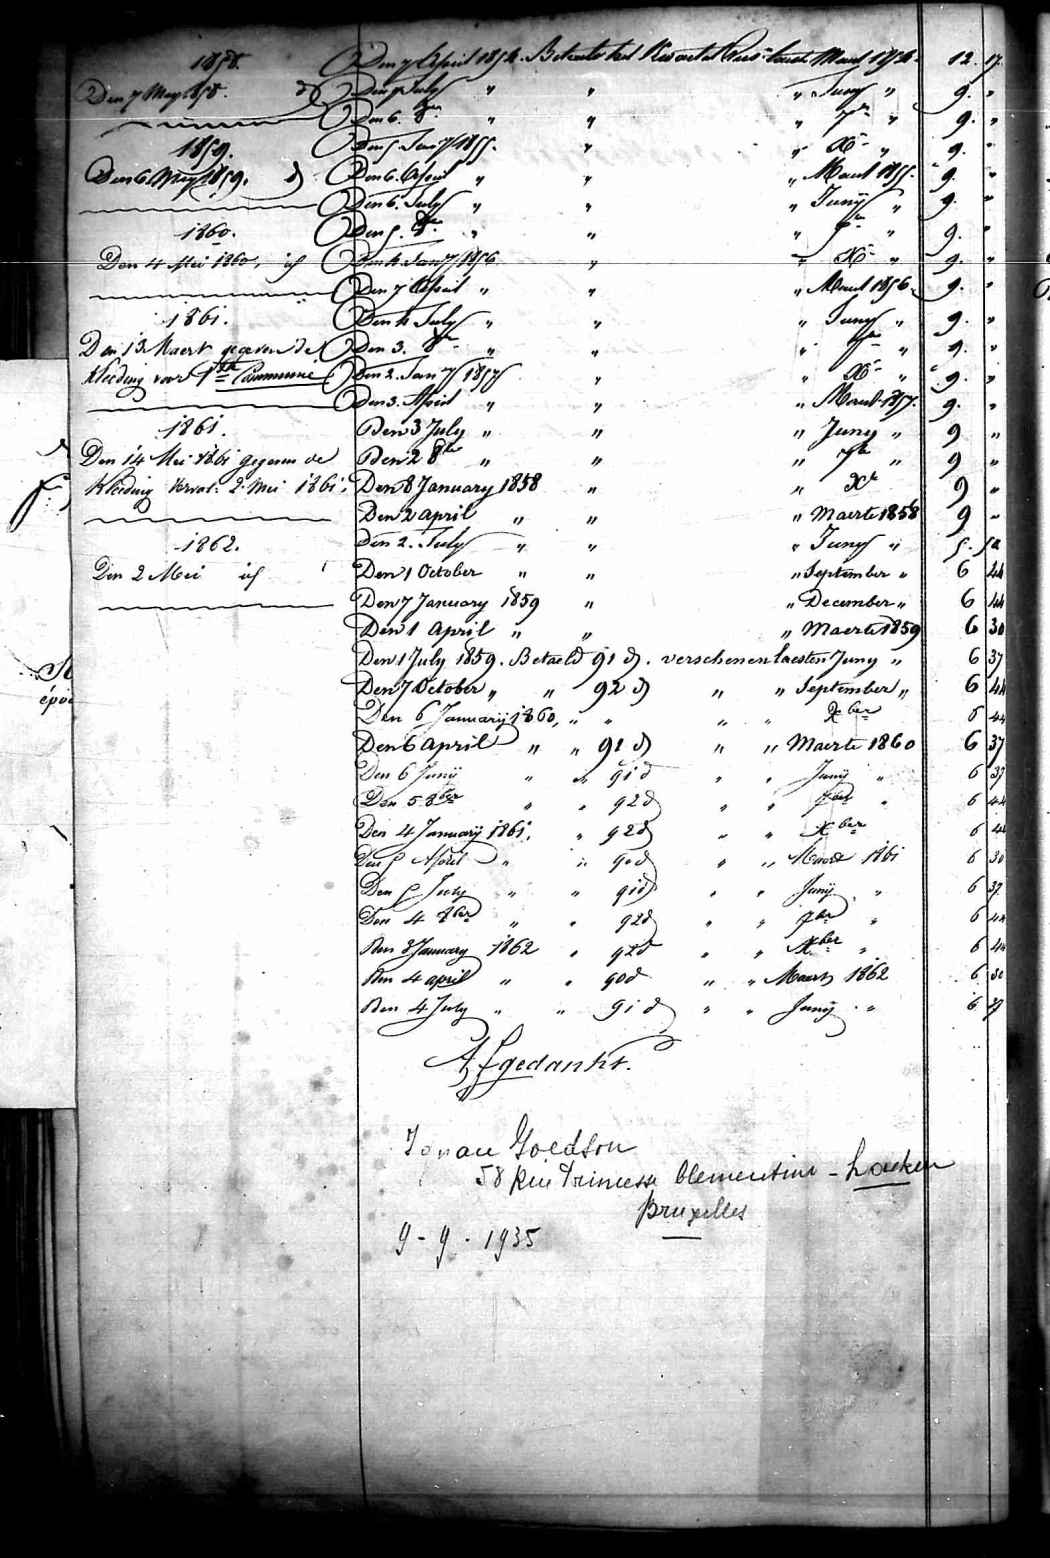 1858.
Den 7 May 1858. d
1859.
Den 6. Mey 1859. d
1860.
Den 4 Mei 1860, id
1861.
Den 13 Maert gegeven de
Kleeding voor 1ste Communie
1861.
Den 14 Mei 1861 gegeven de
Kleeding verval: 2 Mei 1861.
1862.
Den 2 Mei id
Den 7 April 1854. Betaelt het Maert 1854. 12. 17
Den 7 July " " " Juny " 9. "
Den 6. 8er " " " 7er " 9. "
Den 5 Jany 1855. " " Xr " 9. "
Den 6. April " " " Maert 1855. 9. "
Den 6. July " " " Junÿ " 9. "
Den 5. 8er " " " 7er " 9. "
Den 4 Jany 1856 " " Xr " 9. "
Den 7 April " " " Maert 1856 9. "
Den 4 July " " " Juny " 9. "
Den 3. 8er " " " 7er " 9. "
Den 2. Jany 1857 " " Xr " 9. "
Den 3. April " " " Maert 1857. 9. "
Den 3 July " " " Juny " 9 "
Den 2 8bre " " " 7bre " 9 "
Den 8 January 1858 " " Xr 9 "
Den 2 april " " " Maerte 1858 9 "
Den 2. July " " " Juny " 5. 52
Den 1 October " " " September " 6 44
Den 7 January 1859 " " December " 6 44
Den 1 April " " " Maerte 1859 6 30
Den 1 July 1859. Betaeld 91 d. verschenen laesten Juny " 6 37
Den 7 October " " 92 d " " September " 6 44
Den 6 Januarÿ 1860, " " " " Xber 6 44
Den 6 April " " 91 d " " Maerte 1860 6 37
Den 6 Junÿ " " 91 d " " Junÿ " 6 37
Den 5 8ber " " 92 d " " 7ber " 6 44
Den 4 Januarÿ 1861. " 92 d " " Xber 6 44
Den 5 April " " 90 d " " Maert 1861 6 30
Den 5 July " " 91 d " " Junÿ " 6 37
Den 4 8ber " " 92 d " " 7ber " 6 44
Den 3 January 1862 " 92 d " " Xber " 6 44
Den 4 april " " 90 d " " Maert 1862 6 30
Den 4 July " " 91 d " " Junÿ " 6 37
Afgedankt.
Goedson
58 Rue Princesse Clementine - Laeken
Bruxelles
9 - 9 - 1935